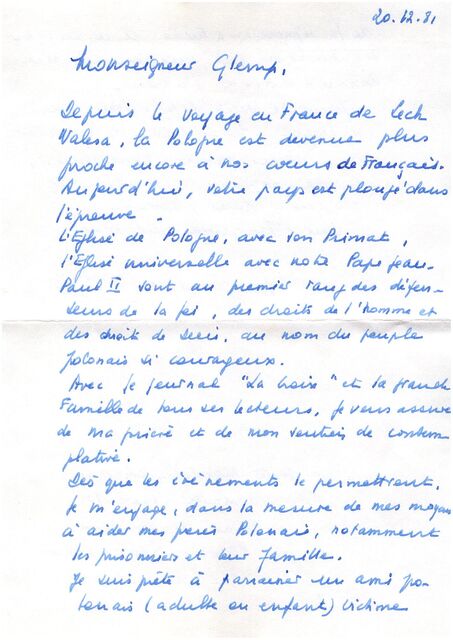 20.12.81
Monseigneur Glemp,
Depuis le voyage en France de Lech
Walesa, la Pologne est devenue plus
proche encore à nos cœurs de Français.
Aujourd'hui, votre pays est plongé dans
l'épreuve.
L'Eglise de Pologne, avec son Primat,
l'Eglise universelle avec notre Pape Jean-
Paul II sont au premier rang des défen-
seurs de la foi, des droits de l'homme et
des droits de Dieu, au nom du peuple
polonais si courageux.
Avec le journal "La Croix" et la grande
Famille de tous ses lecteurs, je vous assure
de ma prière et de mon soutien de contem
plative.
Dès que les événements le permettront,
je m'engage, dans la mesure de mes moyens
à aider mes frères Polonais, notamment
les prisonniers et leur famille.
Je suis prête à parrainer un ami po-
lonais (adulte ou enfant) victime